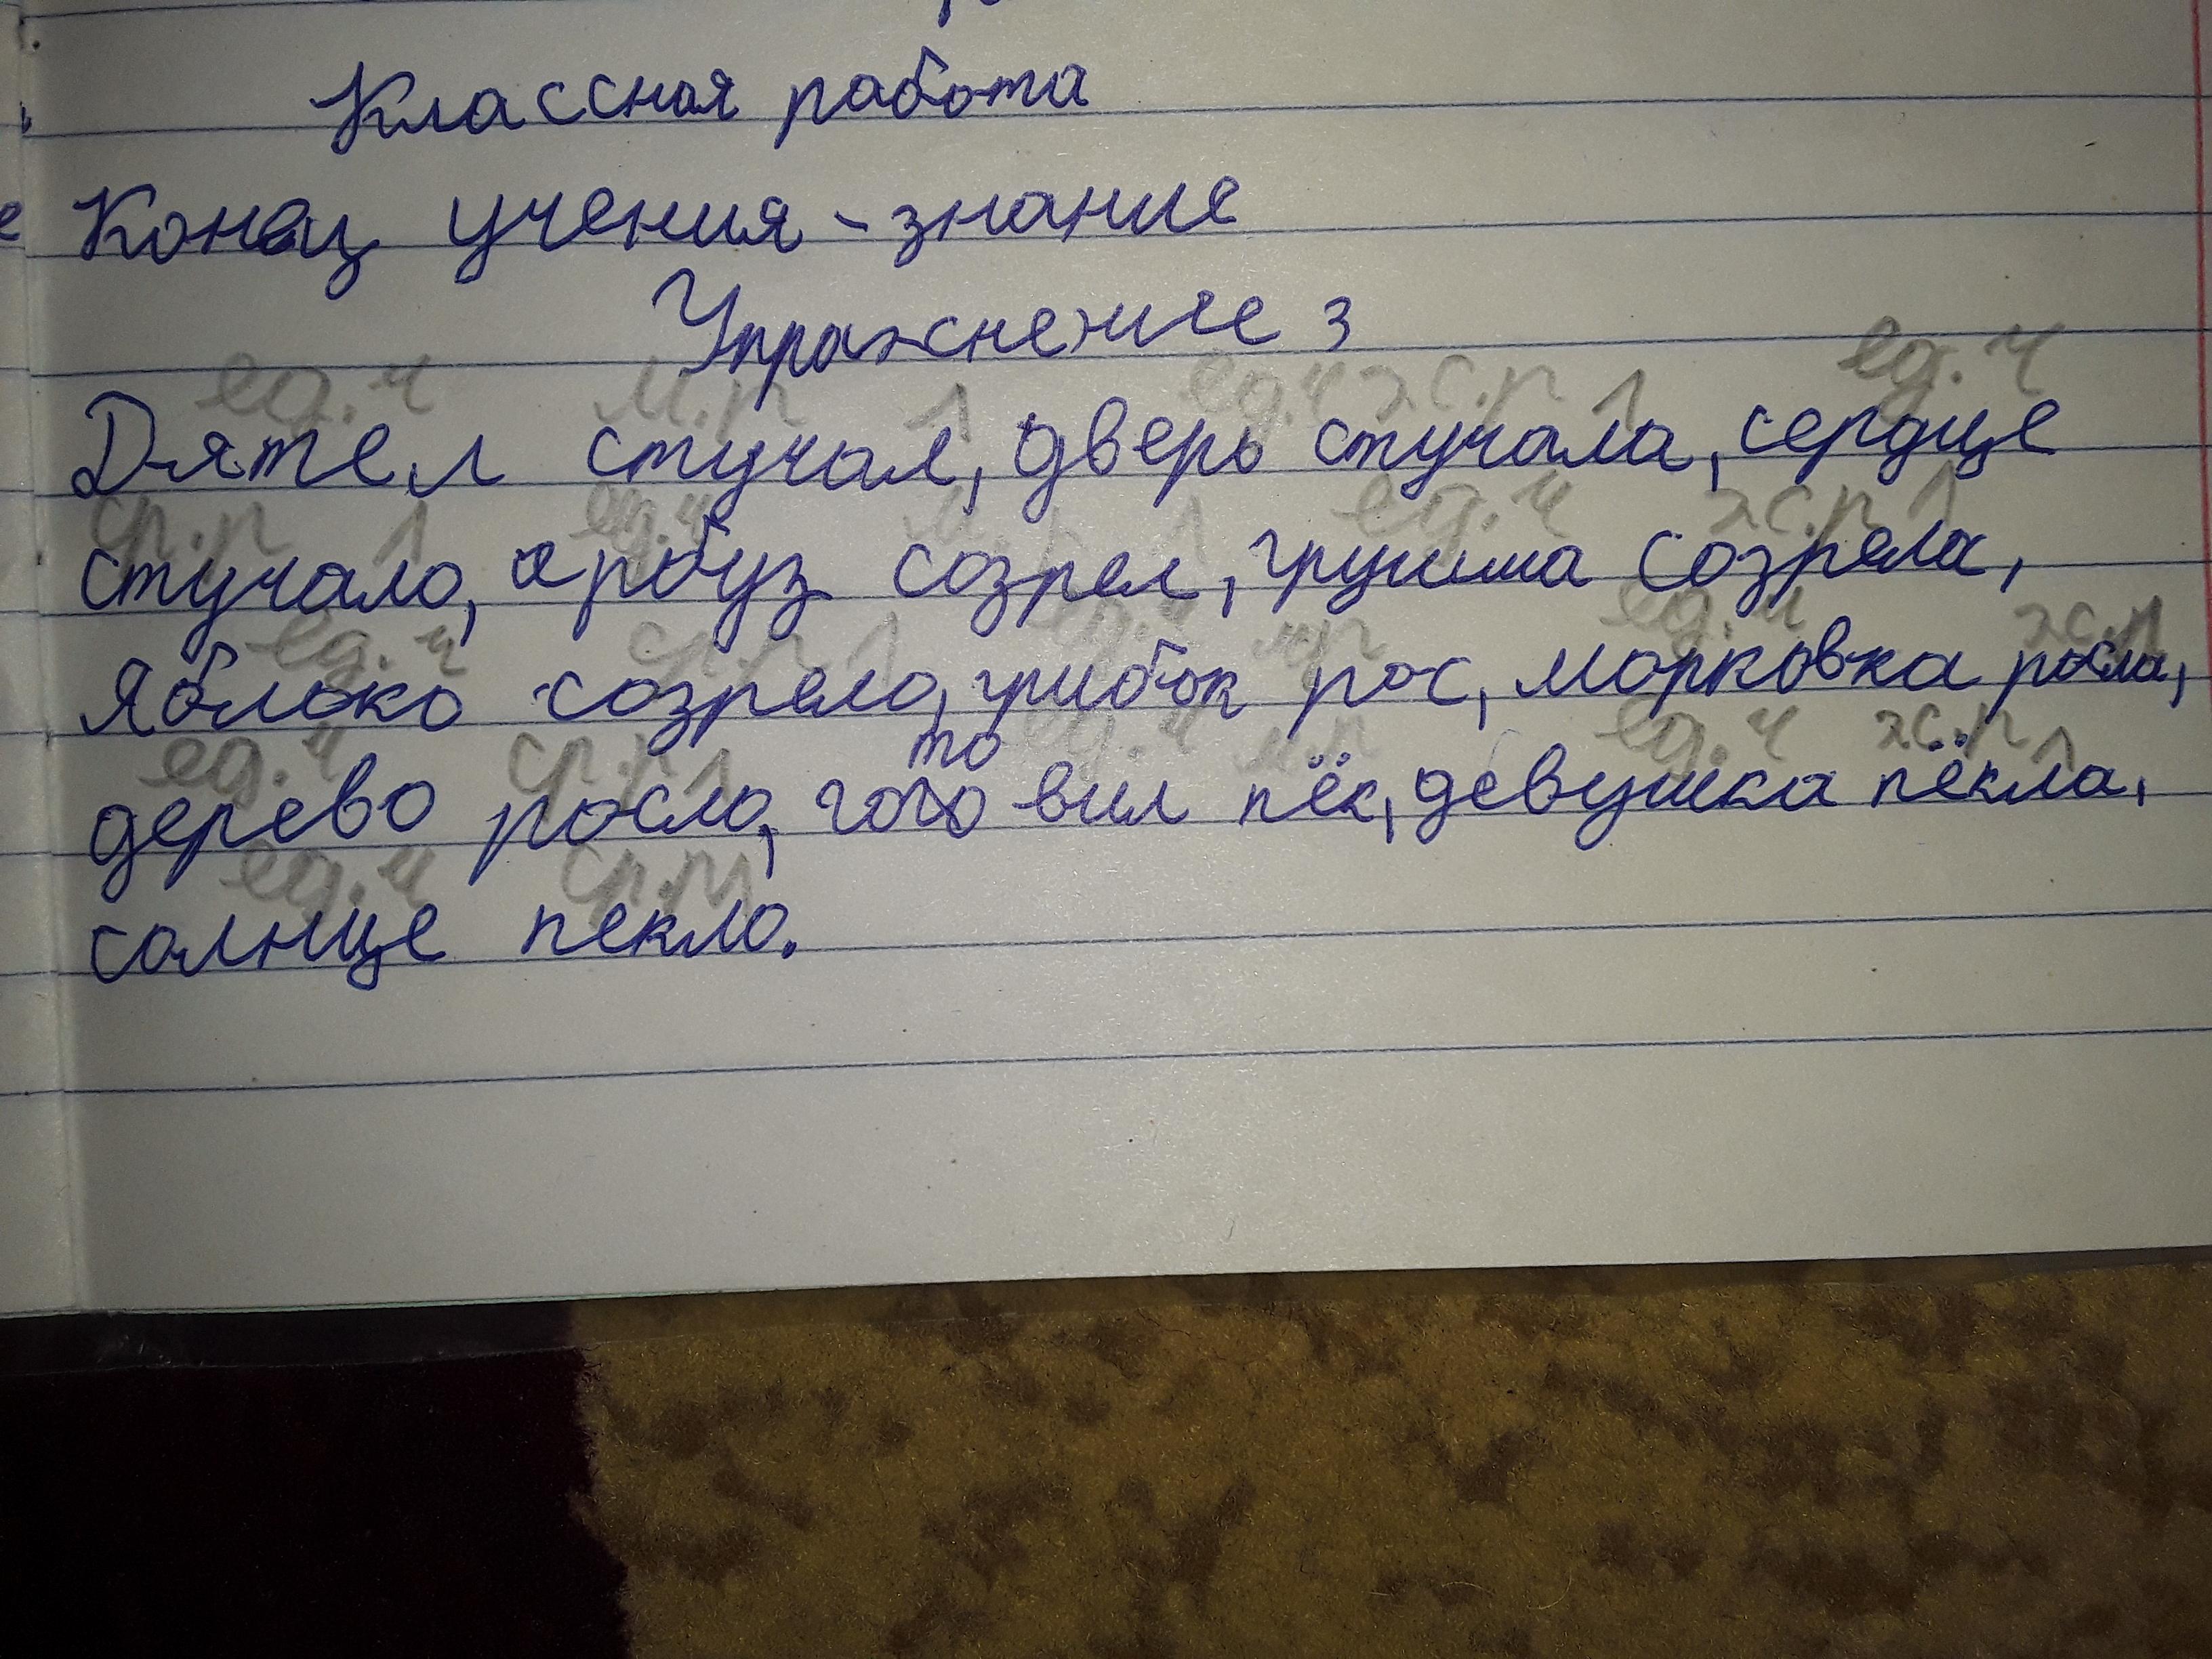 Классная работа
Конец учения - знание
Упражнение 3
ед.ч м.р 1 ед.ч ж.р 1 ед.ч
Дятел стучал, дверь стучала, сердце
ср.р 1 ед.ч м.р 1 ед.ч ж.р 1
стучало, арбуз созрел, груша созрела,
ед.ч ср.р 1 ед.ч м.р ед.ч ж.р
Яблоко созрело, грибок рос, морковка росла,
ед.ч ср.р 1 ед.ч м.р ед.ч ж.р 1
то
дерево росло, гого вил пёк, девушка пёкла,
ед.ч ср.р 1
солнце пекло.